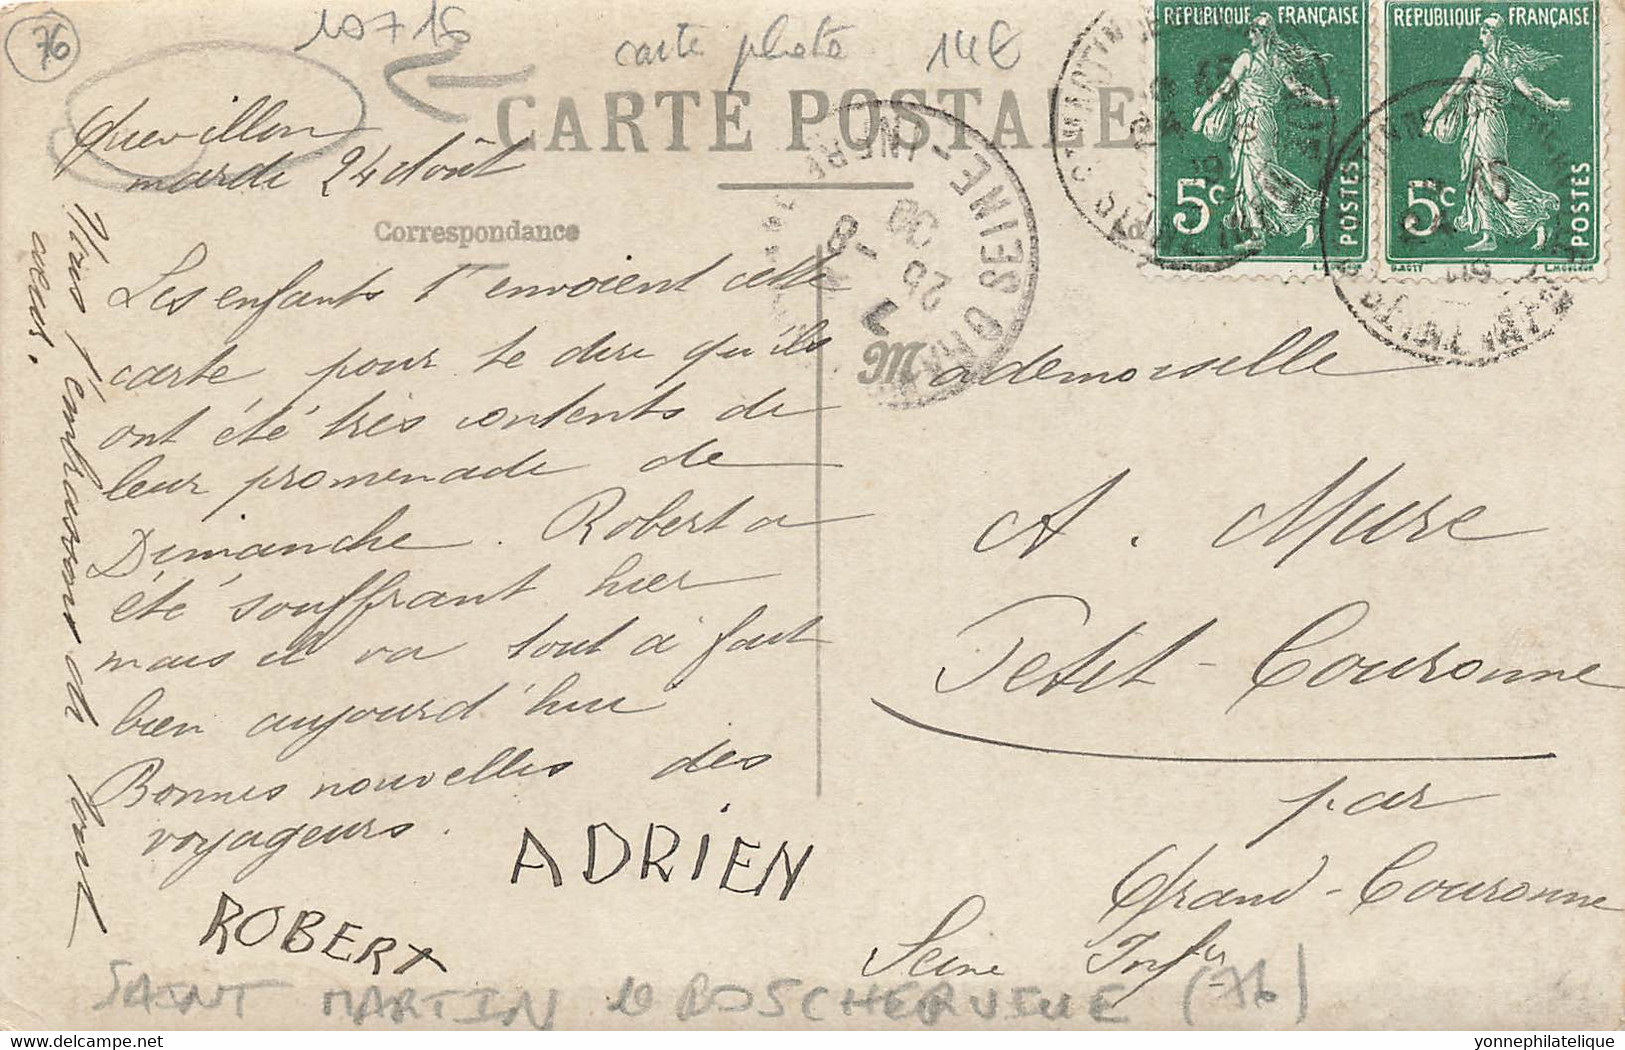 76
10716
carte photo 14€
CARTE POSTALE
REPUBLIQUE FRANÇAISE
5c POSTES
REPUBLIQUE FRANÇAISE
5c POSTES
Quevillon
mardi 24 Août
Correspondance
Les enfants t'envoient cette
carte pour te dire qu'ils
ont été très contents de
leur promenade de
Dimanche. Robert a
été souffrant hier
mais il va tout à fait
bien aujourd'hui
Bonnes nouvelles des
voyageurs.
Nous t'embrassons de tout
cœur.
ADRIEN
ROBERT
Mademoiselle
A. Mure
Petit-Couronne
par
Grand-Couronne
Seine Infre
SAINT MARTIN de BOSCHERVILLE (76)
yonnephilatelique